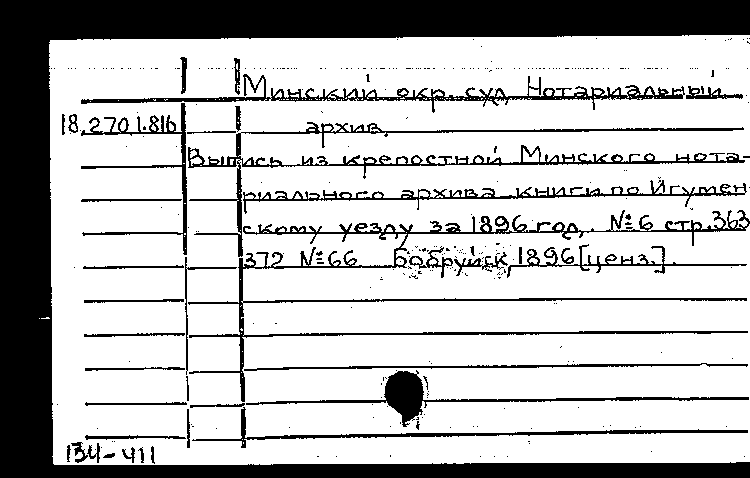 Минский окр. суд. Нотариальный
18.270.1.816 архив.
Выпись из крепостной Минского нота-
риального архива книги по Игумен-
скому уезду за 1896 год. №6 стр.363
372 №66 Бобруйск, 1896 [ценз.].
134-411